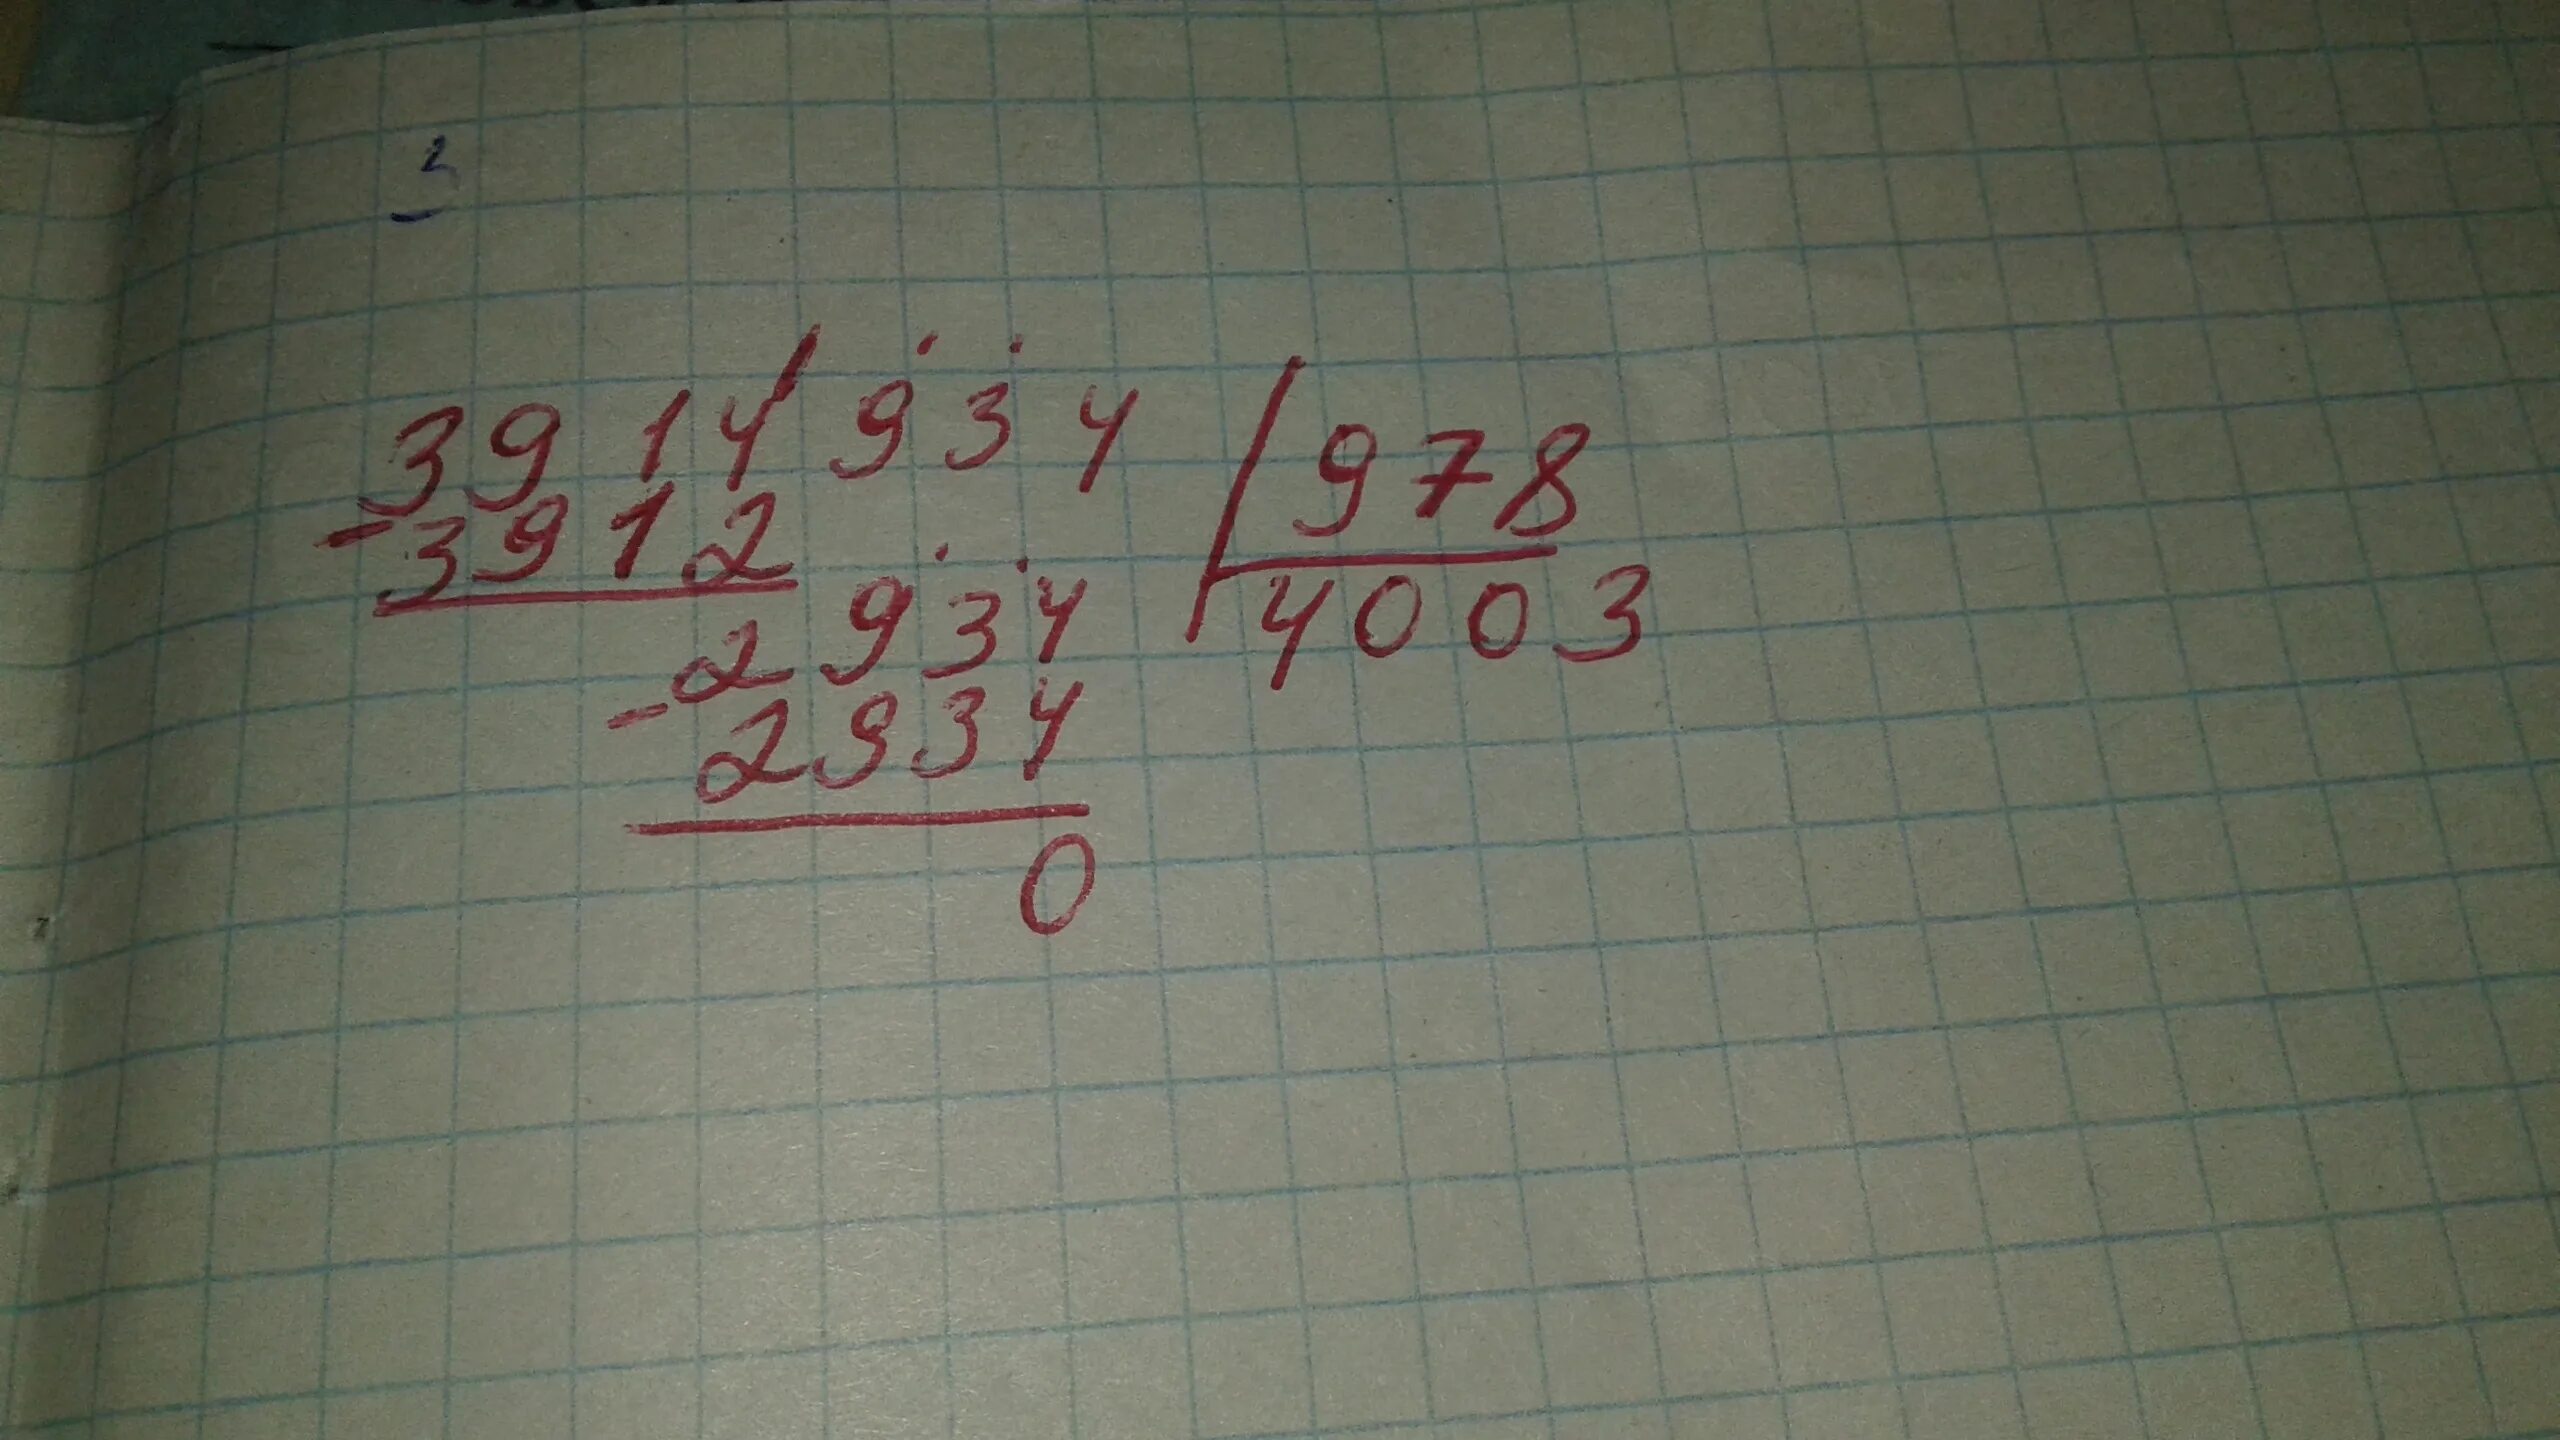 3914934 978
- 3912 4003
2934
- 2934
0